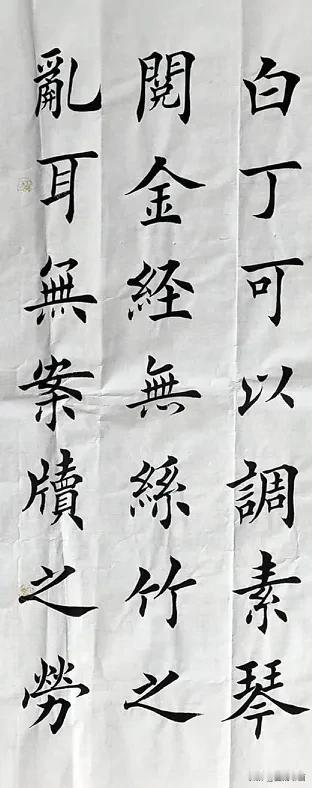 白丁可以調素琴
閱金経無絲竹之
亂耳無案牘之勞